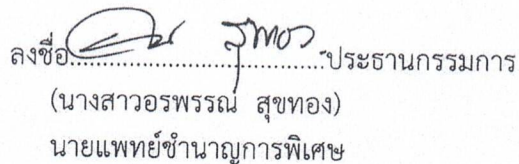 ลงชื่อ....................................ประธานกรรมการ
(นางสาวอรพรรณ สุขทอง)
นายแพทย์ชำนาญการพิเศษ